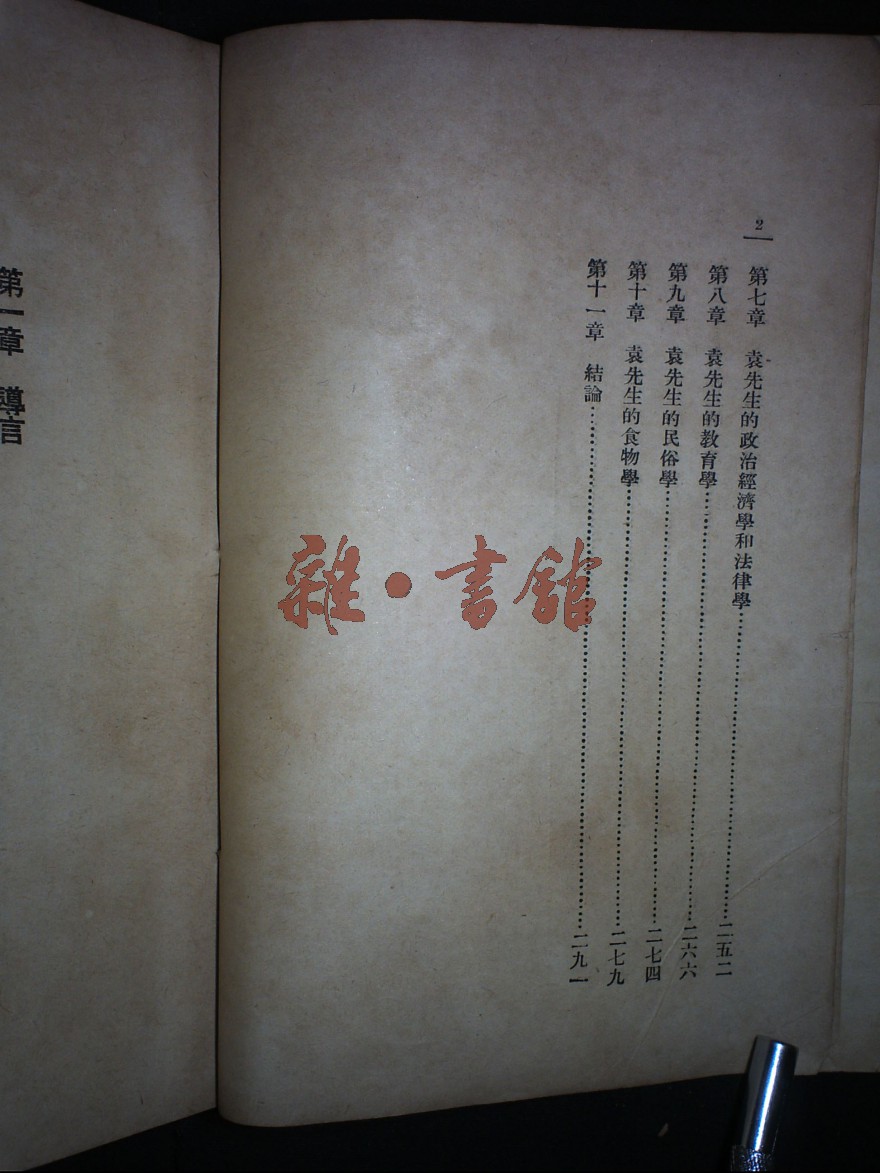 2
第七章　袁先生的政治經濟學和法律學……二五二
第八章　袁先生的教育學……二六六
第九章　袁先生的民俗學……二七四
第十章　袁先生的食物學……二七九
第十一章　結論……二九一
第一章　導言
雜·書館